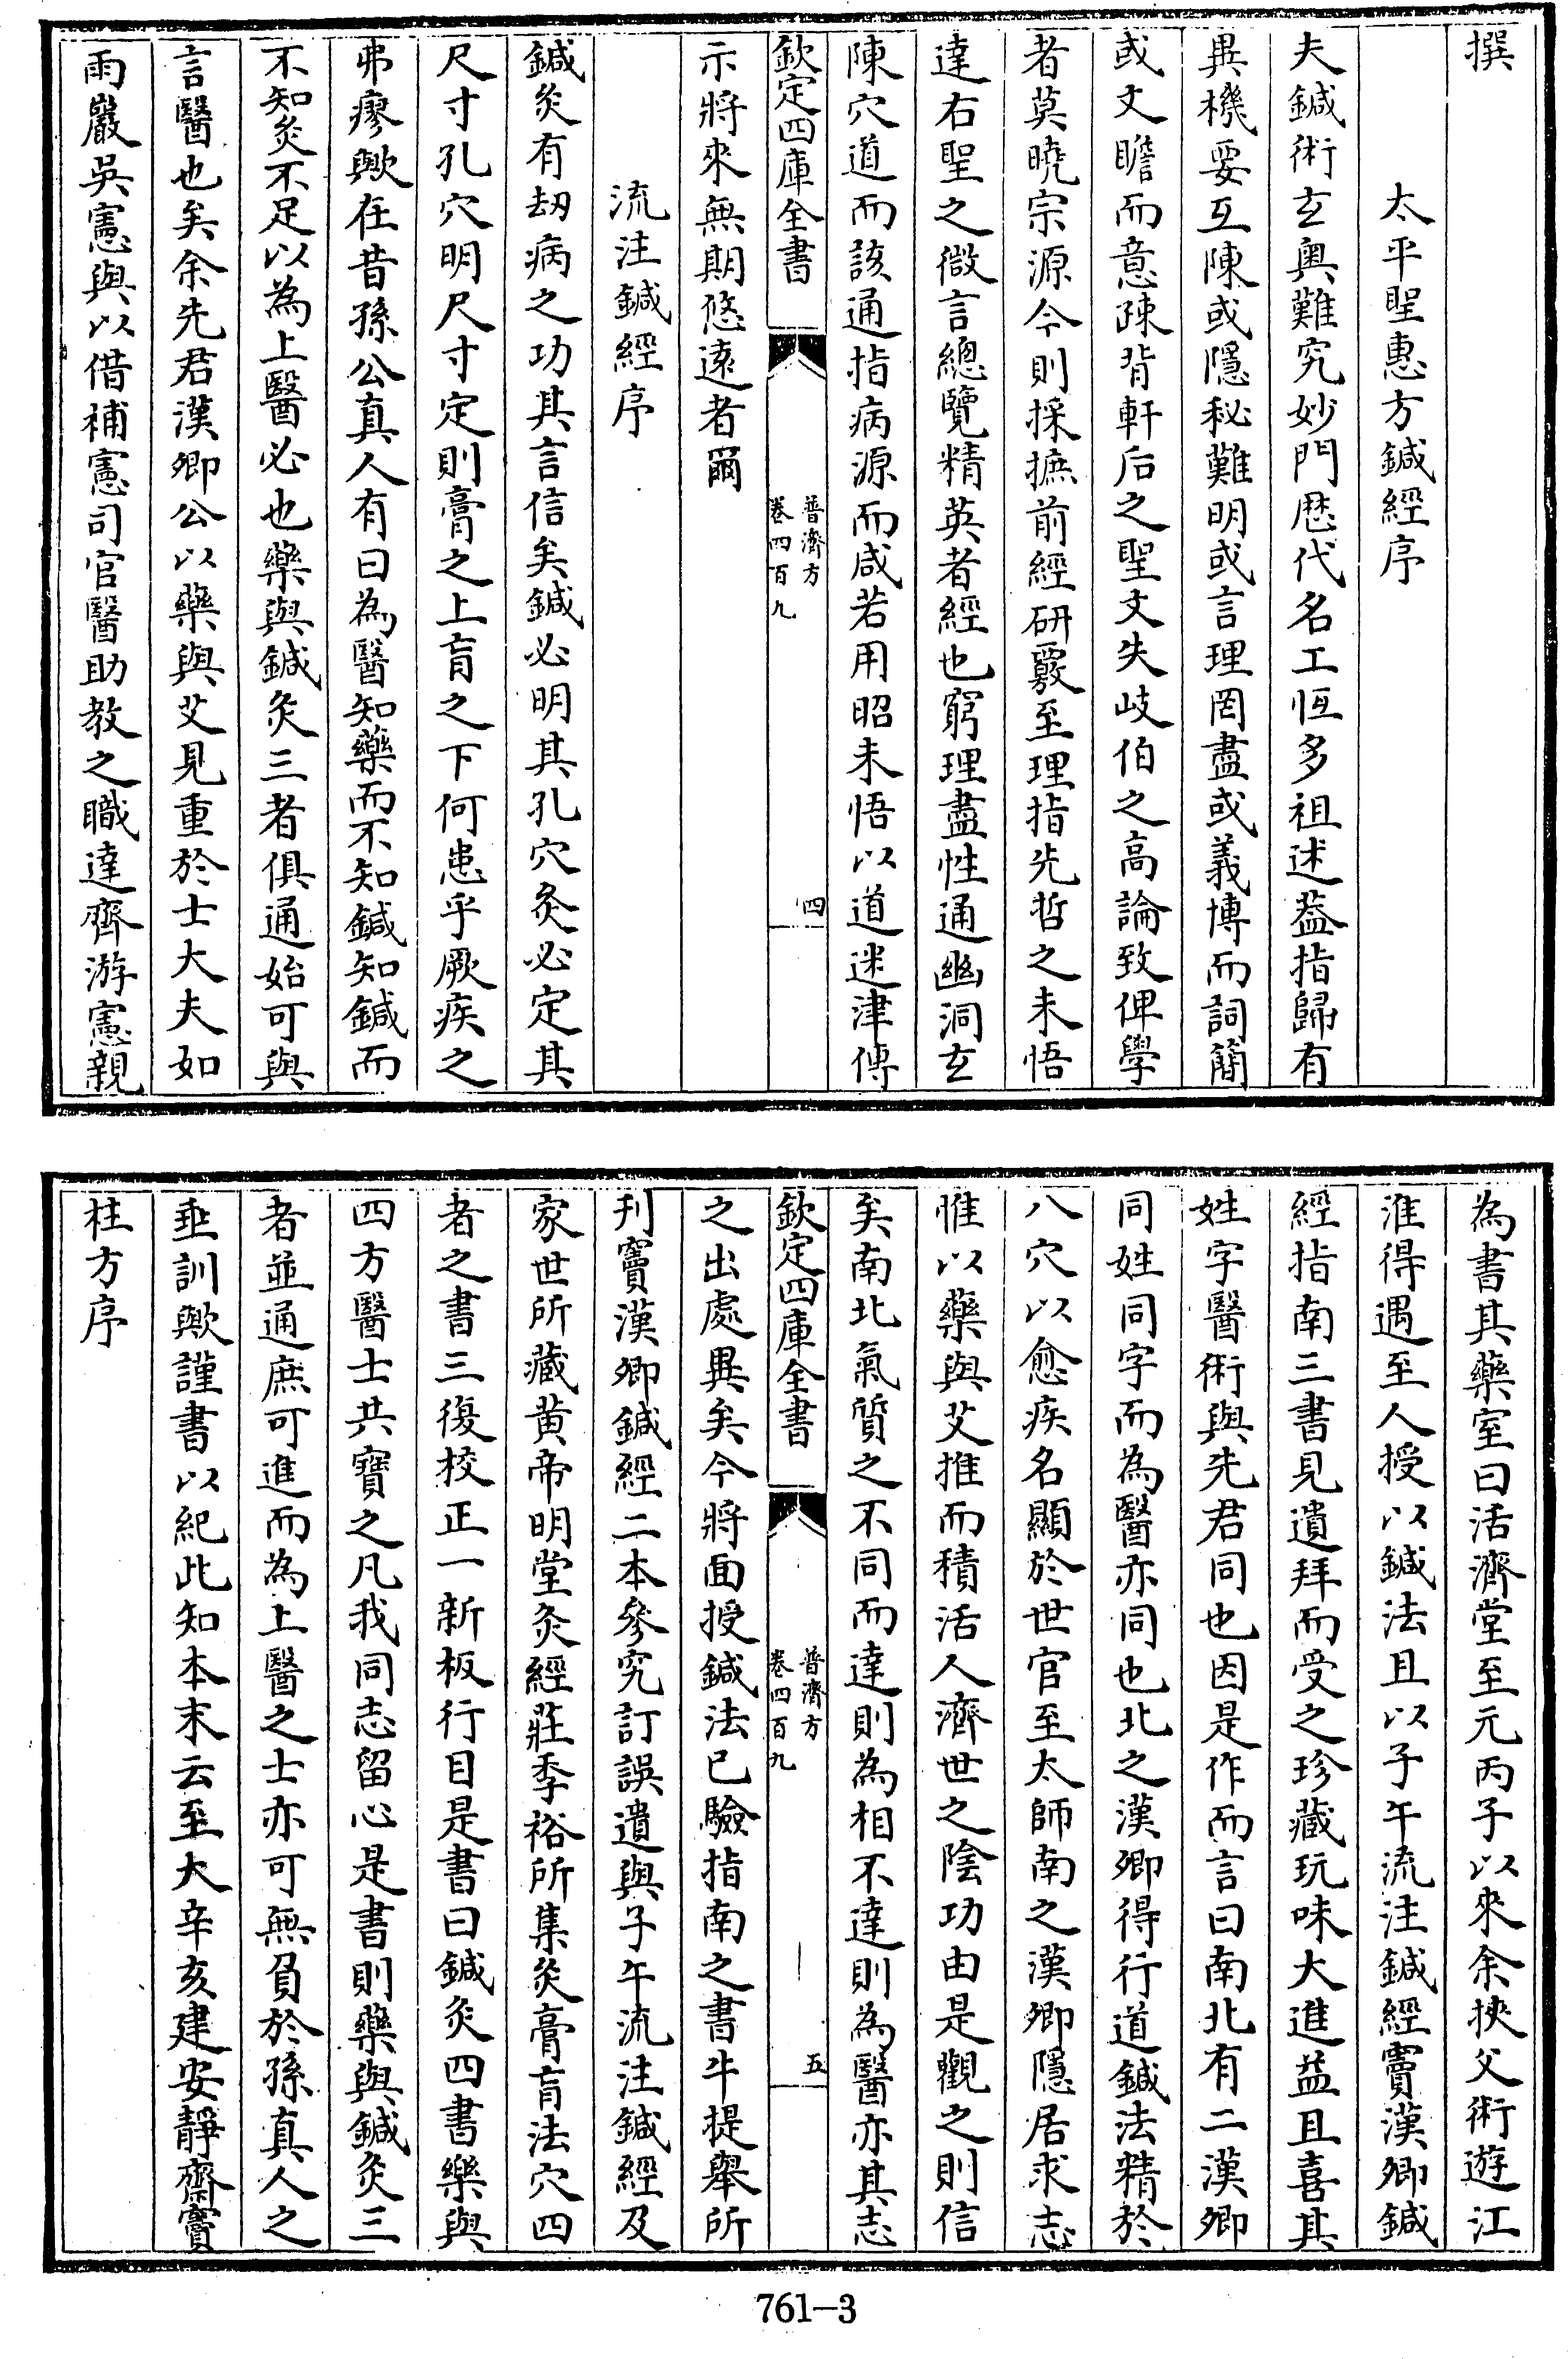 撰
太平聖惠方鍼經序
夫鍼術玄奧難究妙門歷代名工恆多祖述葢指歸有
異機要互陳或隱秘難明或言理罔盡或義博而詞簡
或文瞻而意疎背軒后之聖文失岐伯之高論致俾學
者莫曉宗源今則採摭前經研覈至理指先哲之未悟
達右聖之微言總覽精英者經也窮理盡性通幽洞玄
陳穴道而該通指病源而咸若用昭未悟以道迷津傳
欽定四庫全書
普濟方
卷四百九
四
示將來無期悠遠者爾
流注鍼經序
鍼灸有刼病之功其言信矣鍼必明其孔穴灸必定其
尺寸孔穴明尺寸定則膏之上肓之下何患乎厥疾之
弗瘳歟在昔孫公真人有曰為醫知藥而不知鍼知鍼而
不知灸不足以為上醫必也藥與鍼灸三者俱通始可與
言醫也矣余先君漢卿公以藥與艾見重於士大夫如
雨巖吳憲與以借補憲司官醫助教之職達齊游憲親
為書其藥室曰活濟堂至元丙子以來余挾父術遊江
淮得遇至人授以鍼法且以子午流注鍼經竇漢卿鍼
經指南三書見遺拜而受之珍藏玩味大進益且喜其
姓字醫術與先君同也因是作而言曰南北有二漢卿
同姓同字而為醫亦同也北之漢卿得行道鍼法精於
八穴以愈疾名顯於世官至太師南之漢卿隱居求志
惟以藥與艾推而積活人濟世之陰功由是觀之則信
矣南北氣質之不同而達則為相不達則為醫亦其志
欽定四庫全書
普濟方
卷四百九
五
之出處異矣今將面授鍼法已驗指南之書牛提舉所
刋竇漢卿鍼經二本參究訂誤遺與子午流注鍼經及
家世所藏黃帝明堂灸經莊季裕所集灸膏肓法穴四
者之書三復校正一新板行目是書曰鍼灸四書樂與
四方醫士共寶之凡我同志留心是書則藥與鍼灸三
者並通庶可進而為上醫之士亦可無負於孫真人之
垂訓歟謹書以紀此知本末云至大辛亥建安靜齋竇
柱方序
761-3